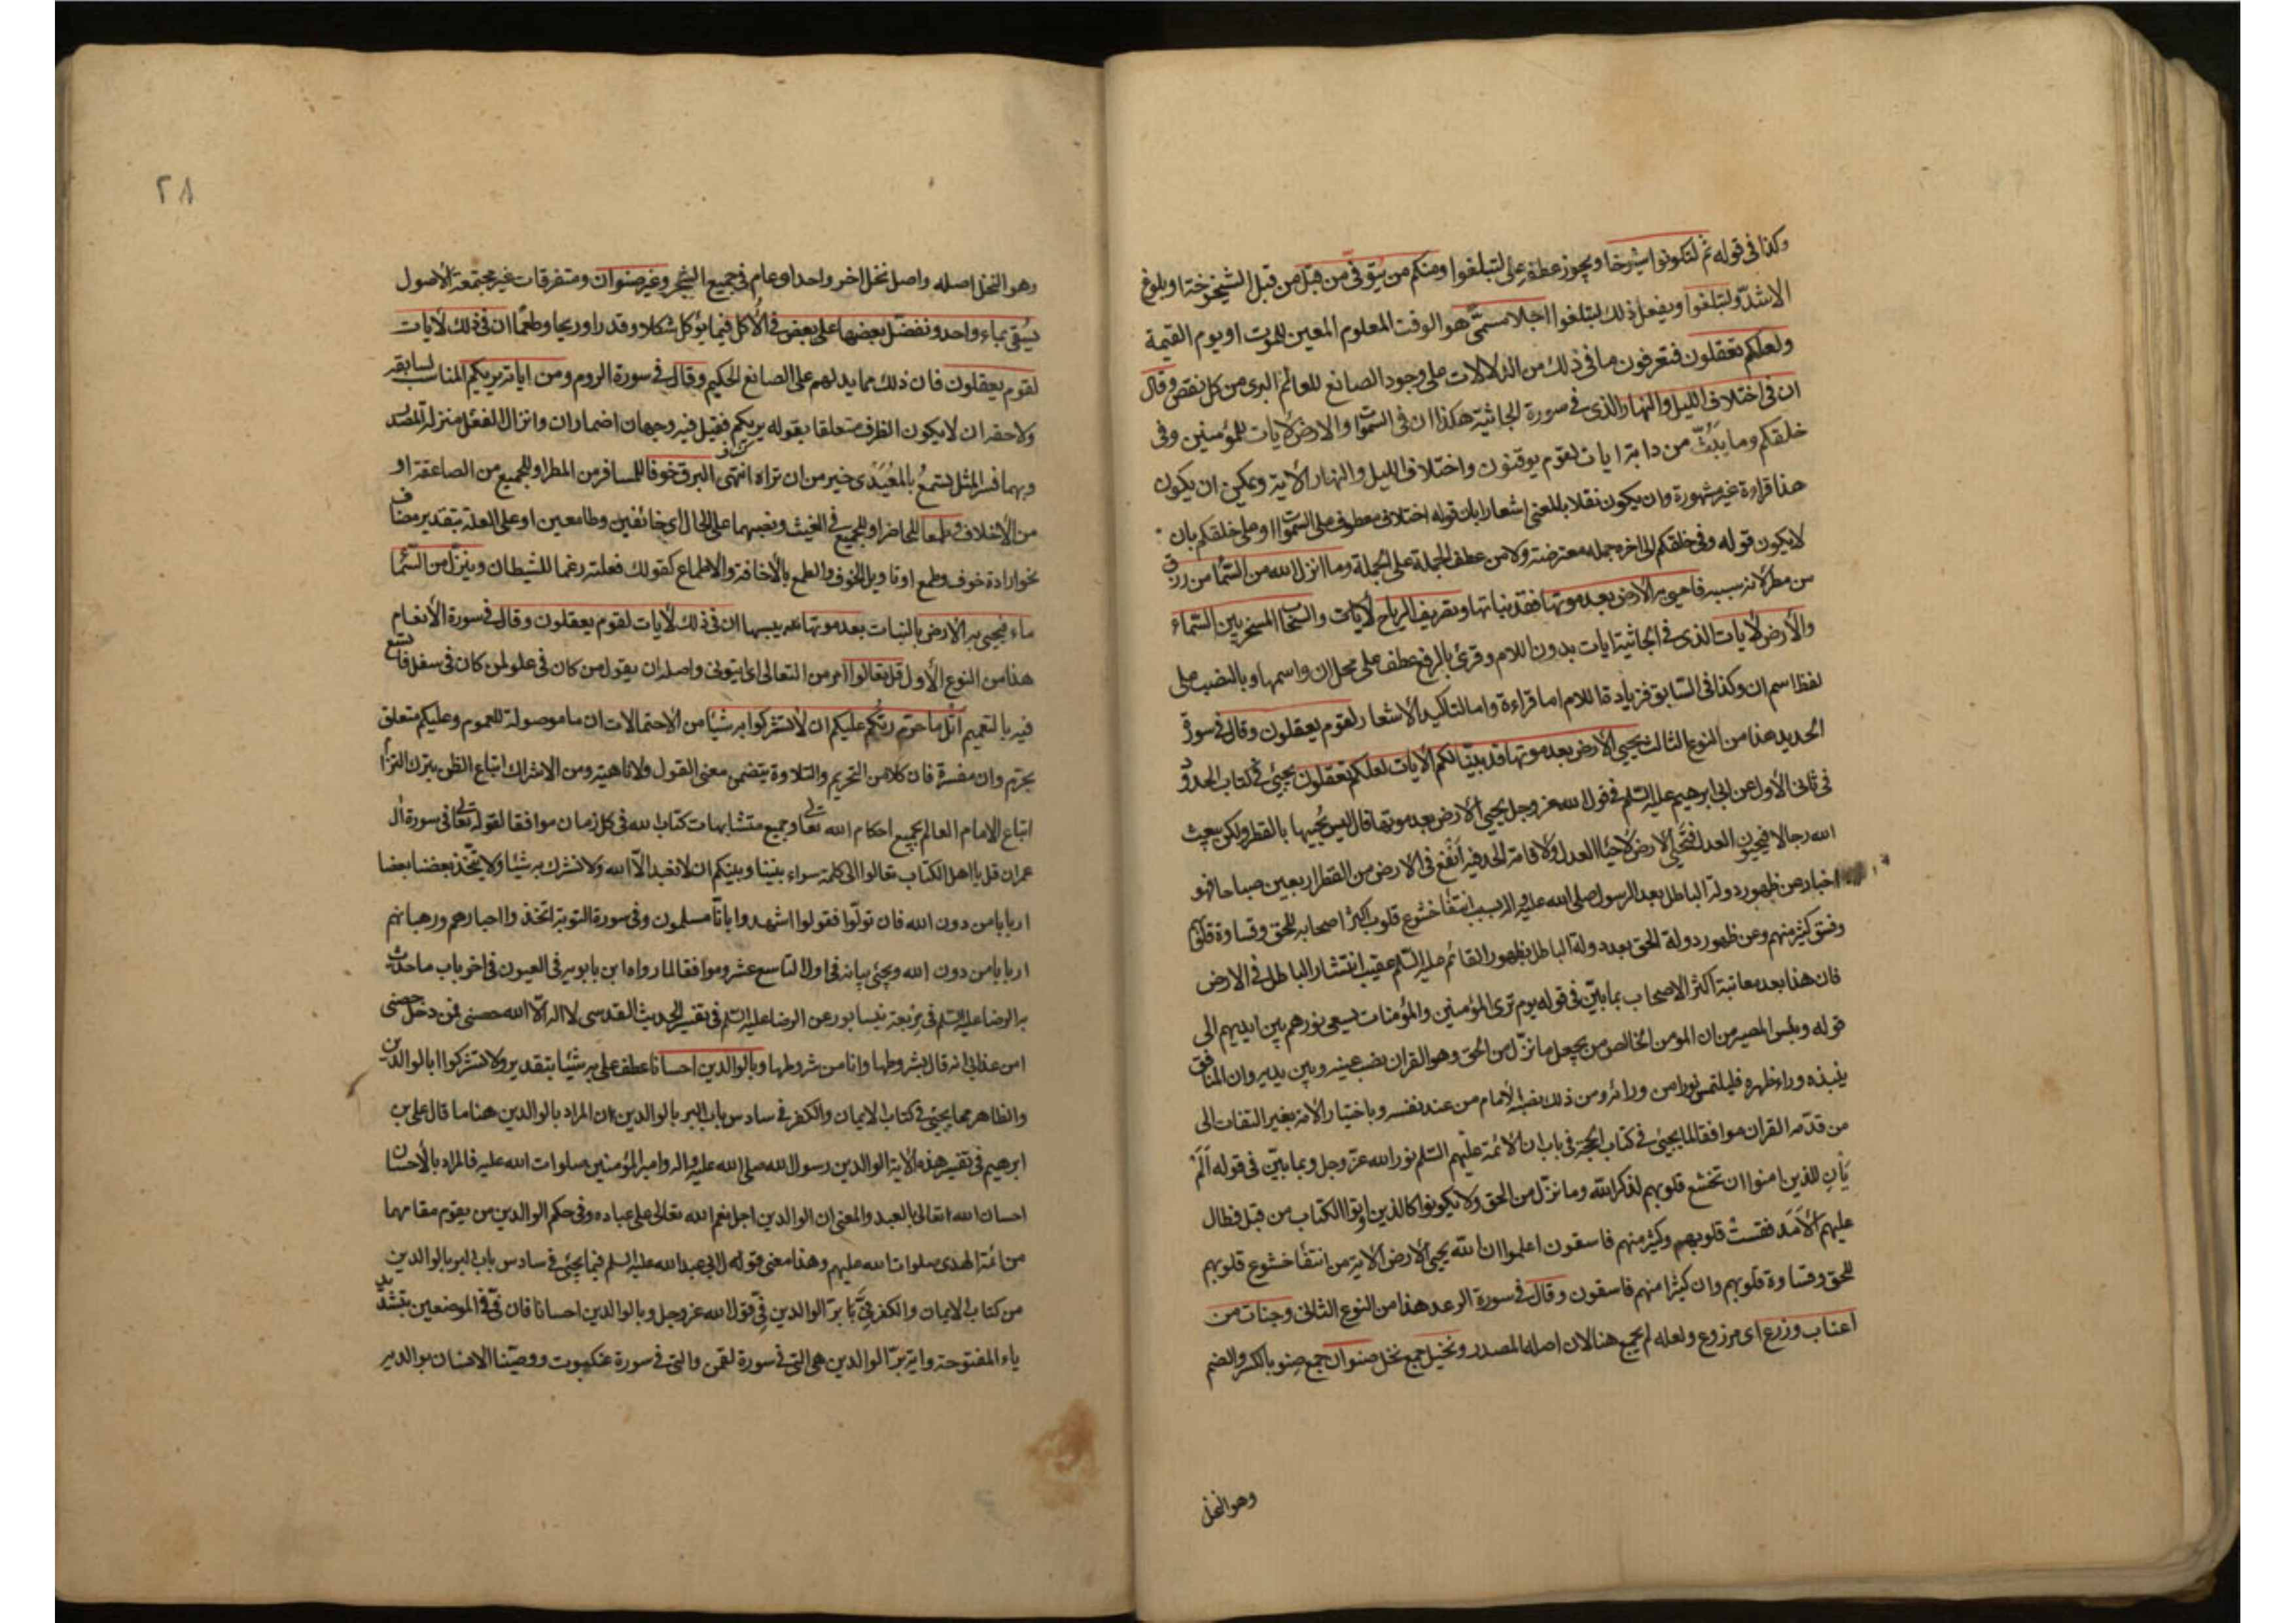 وكذا في قوله ثم لتكونوا شيوخا ويجوز عطفه على لتبلغوا ومنكم من يتوفى من قبل من قبل الشيخوخة او بلوغ
الاشد ولتبلغوا ويفعل ذلك لتبلغوا اجلا مسمى هو الوقت المعلوم المعين للموت او يوم القيمة
ولعلكم تعقلون فتعرفون ما في ذلك من الدلالات على وجود الصانع للعالم البرى من كل نقص وقال
ان في اختلاف الليل والنهار الذى في سورة الجاثية هكذا ان في السموات والارض لآيات للمؤمنين وفى
خلقكم وما يبث من دابة ايات لقوم يوقنون واختلاف الليل والنهار الآية ويمكن ان يكون
هذا قراءة غير مشهورة وان يكون نقلا بالمعنى اشعارا بان قوله اختلاف معطوف على السموات او على خلقكم بان
لا يكون قوله وفى خلقكم الى اخره جملة معترضة ولا من عطف الجملة على الجملة وما انزل الله من السماء من رزق
من مطر لانه سببه فاحيى به الارض بعد موتها فقد نباتها وتصريف الرياح لآيات والسحاب المسخر بين السماء
والأرض لآيات الذى في الجاثية ايات بدون اللام وقرئ بالرفع عطف على محل ان واسمها وبالنصب على
لفظ اسم ان وكذا في السابق فزيادة اللام اما قراءة واما لتاكيد الاشعار لقوم يعقلون وقال في سورة
الحديد هذا من النوع الثالث يحيى الارض بعد موتها قد بينا لكم الآيات لعلكم تعقلون يجيئ في كتاب الحدود
في ثانى الأول عن ابى ابرهيم عليه السلم في قول الله عز وجل يحيى الارض بعد موتها قال ليس يحييها بالقطر ولكن يبعث
الله رجالا فيحيون العدل فتحيى الارض لاحياء العدل ولاقامة الحد فيه انفع في الارض من القطر اربعين صباحا فهو
اخبار عن ظهور دولة الباطل بعد الرسول صلى الله عليه واله بسبب انتفاء خشوع قلوب اكثر اصحابه للحق وقساوة قلوبهم
وفسق كثير منهم وعن ظهور دولة الحق بعد دولة الباطل بظهور القائم عليه السلم عقيب انتشار الباطل في الارض
فان هذا بعد معاتبة اكثر الاصحاب بما بين في قوله يوم ترى المؤمنين والمؤمنات يسعى نورهم بين ايديهم الى
قوله وبئس المصير من ان المومن الخالص من يجعل ما نزل من الحق وهو القران نصب عينيه وبين يديه وان المنافق
ينبذه وراء ظهره فليلتمس نورا من ورائه ومن ذلك نصب الأمام من عند نفسه وباختيار الامة بغير التفات الى
من قدمه القران موافقا لما يجيئ في كتاب الحجة في باب ان الأئمة عليهم السلم نور الله عز وجل وبما بين في قوله ألم
يأن للذين امنوا ان تخشع قلوبهم لذكر الله وما نزل من الحق ولا يكونوا كالذين اوتوا الكتاب من قبل فطال
عليهم الأمد فقست قلوبهم وكثير منهم فاسقون اعلموا ان الله يحيى الارض الآية من انتفاء خشوع قلوبهم
للحق وقساوة قلوبهم وان كثيرا منهم فاسقون وقال في سورة الرعد هذا من النوع الثانى وجنات من
اعناب وزرع اى مزروع ولعله لم يجمع هنا لان اصله المصدر ونخيل جمع نخل صنوان جمع صنو بالكسر والضم
وهو النخل
٢٨
وهو النخل اصله واصل نخل اخر واحد او عام في جميع الشجر وغير صنوان ومتفرقات غير مجتمعة الأصول
يسقى بماء واحد ونفضل بعضها على بعض في الأكل فيما يؤكل شكلا وقدرا وريحا وطعما ان في ذلك لآيات
لقوم يعقلون فان ذلك مما يدلهم على الصانع الحكيم وقال في سورة الروم ومن اياته يريكم المناسب لسابقه
ولاحقه ان لا يكون الظرف متعلقا بقوله يريكم فقيل فيه وجهان اضمار ان وانزال الفعل منزلة المصدر
وبهما فسر المثل تسمع بالمعيدى خير من ان تراه انتهى البرق خوفا للمسافر من المطر او للجميع من الصاعقة او
من الأخلاف وطمعا للحاضر او للجميع في الغيث ونصبهما على الحال اى خائفين وطامعين او على العلة بتقدير مضاف
نحو ارادة خوف وطمع او تاويل الخوف والطمع بالأخافة والأطماع كقولك فعلته رغما للشيطان وينزل من السماء
ماء فيحيى به الارض بالنبات بعد موتها عند يبسها ان في ذلك لآيات لقوم يعقلون وقال في سورة الأنعام
هذا من النوع الأول قل تعالوا امر من التعالى اى ايتونى واصله ان يقول من كان في علو لمن كان في سفل فاتسع
فيه بالتعميم اتل ما حرم ربكم عليكم ان لا تشركوا به شيئا من الاحتمالات ان ما موصولة للعموم وعليكم متعلق
بحرم وان مفسرة فان كلا من التحريم والتلاوة يتضمن معنى القول ولا ناهية ومن الاشراك اتباع الظن بترك
اتباع الامام العالم بجميع احكام الله تعالى وجميع متشابهات كتاب الله في كل زمان موافقا لقوله تعالى في سورة ال
عمران قل يا اهل الكتاب تعالوا الى كلمة سواء بيننا وبينكم ان لا نعبد الا الله ولا نشرك به شيئا ولا يتخذ بعضنا بعضا
اربابا من دون الله فان تولوا فقولوا اشهدوا بانا مسلمون وفى سورة التوبة اتخذوا احبارهم ورهبانهم
اربابا من دون الله ويجئ بيانه في اول التاسع عشر وموافقا لما رواه ابن بابويه في العيون في اخر باب ما حدث
به الرضا عليه السلم في مربعة نيسابور عن الرضا عليه السلم في تفسير الحديث القدسى لا اله الا الله حصنى فمن دخل حصنى
امن عذابى انه قال بشروطها وانا من شروطها وبالوالدين احسانا عطف على به شيئا بتقدير ولا تشركوا بالوالدين
والظاهر مما يجئ في كتاب الايمان والكفر في سادس باب البر بالوالدين ان المراد بالوالدين هنا ما قال على بن
ابرهيم في تفسير هذه الآية الوالدين رسول الله صلى الله عليه واله وامير المؤمنين صلوات الله عليه فالمراد بالأحسان
احسان الله تعالى بالعبد والمعنى ان الوالدين اجل نعم الله تعالى على عباده وفى حكم الوالدين من يقوم مقامهما
من ائمة الهدى صلوات الله عليهم وهذا معنى قوله ابى عبد الله عليه السلم فيما يجئ في سادس باب البر بالوالدين
من كتاب الايمان والكفر في بر الوالدين في قول الله عز وجل وبالوالدين احسانا فان في في الموضعين بتشديد
ياء المفتوحة واية بر الوالدين هى التى في سورة لقمن والتى في سورة عنكبوت ووصينا الانسان بوالديه